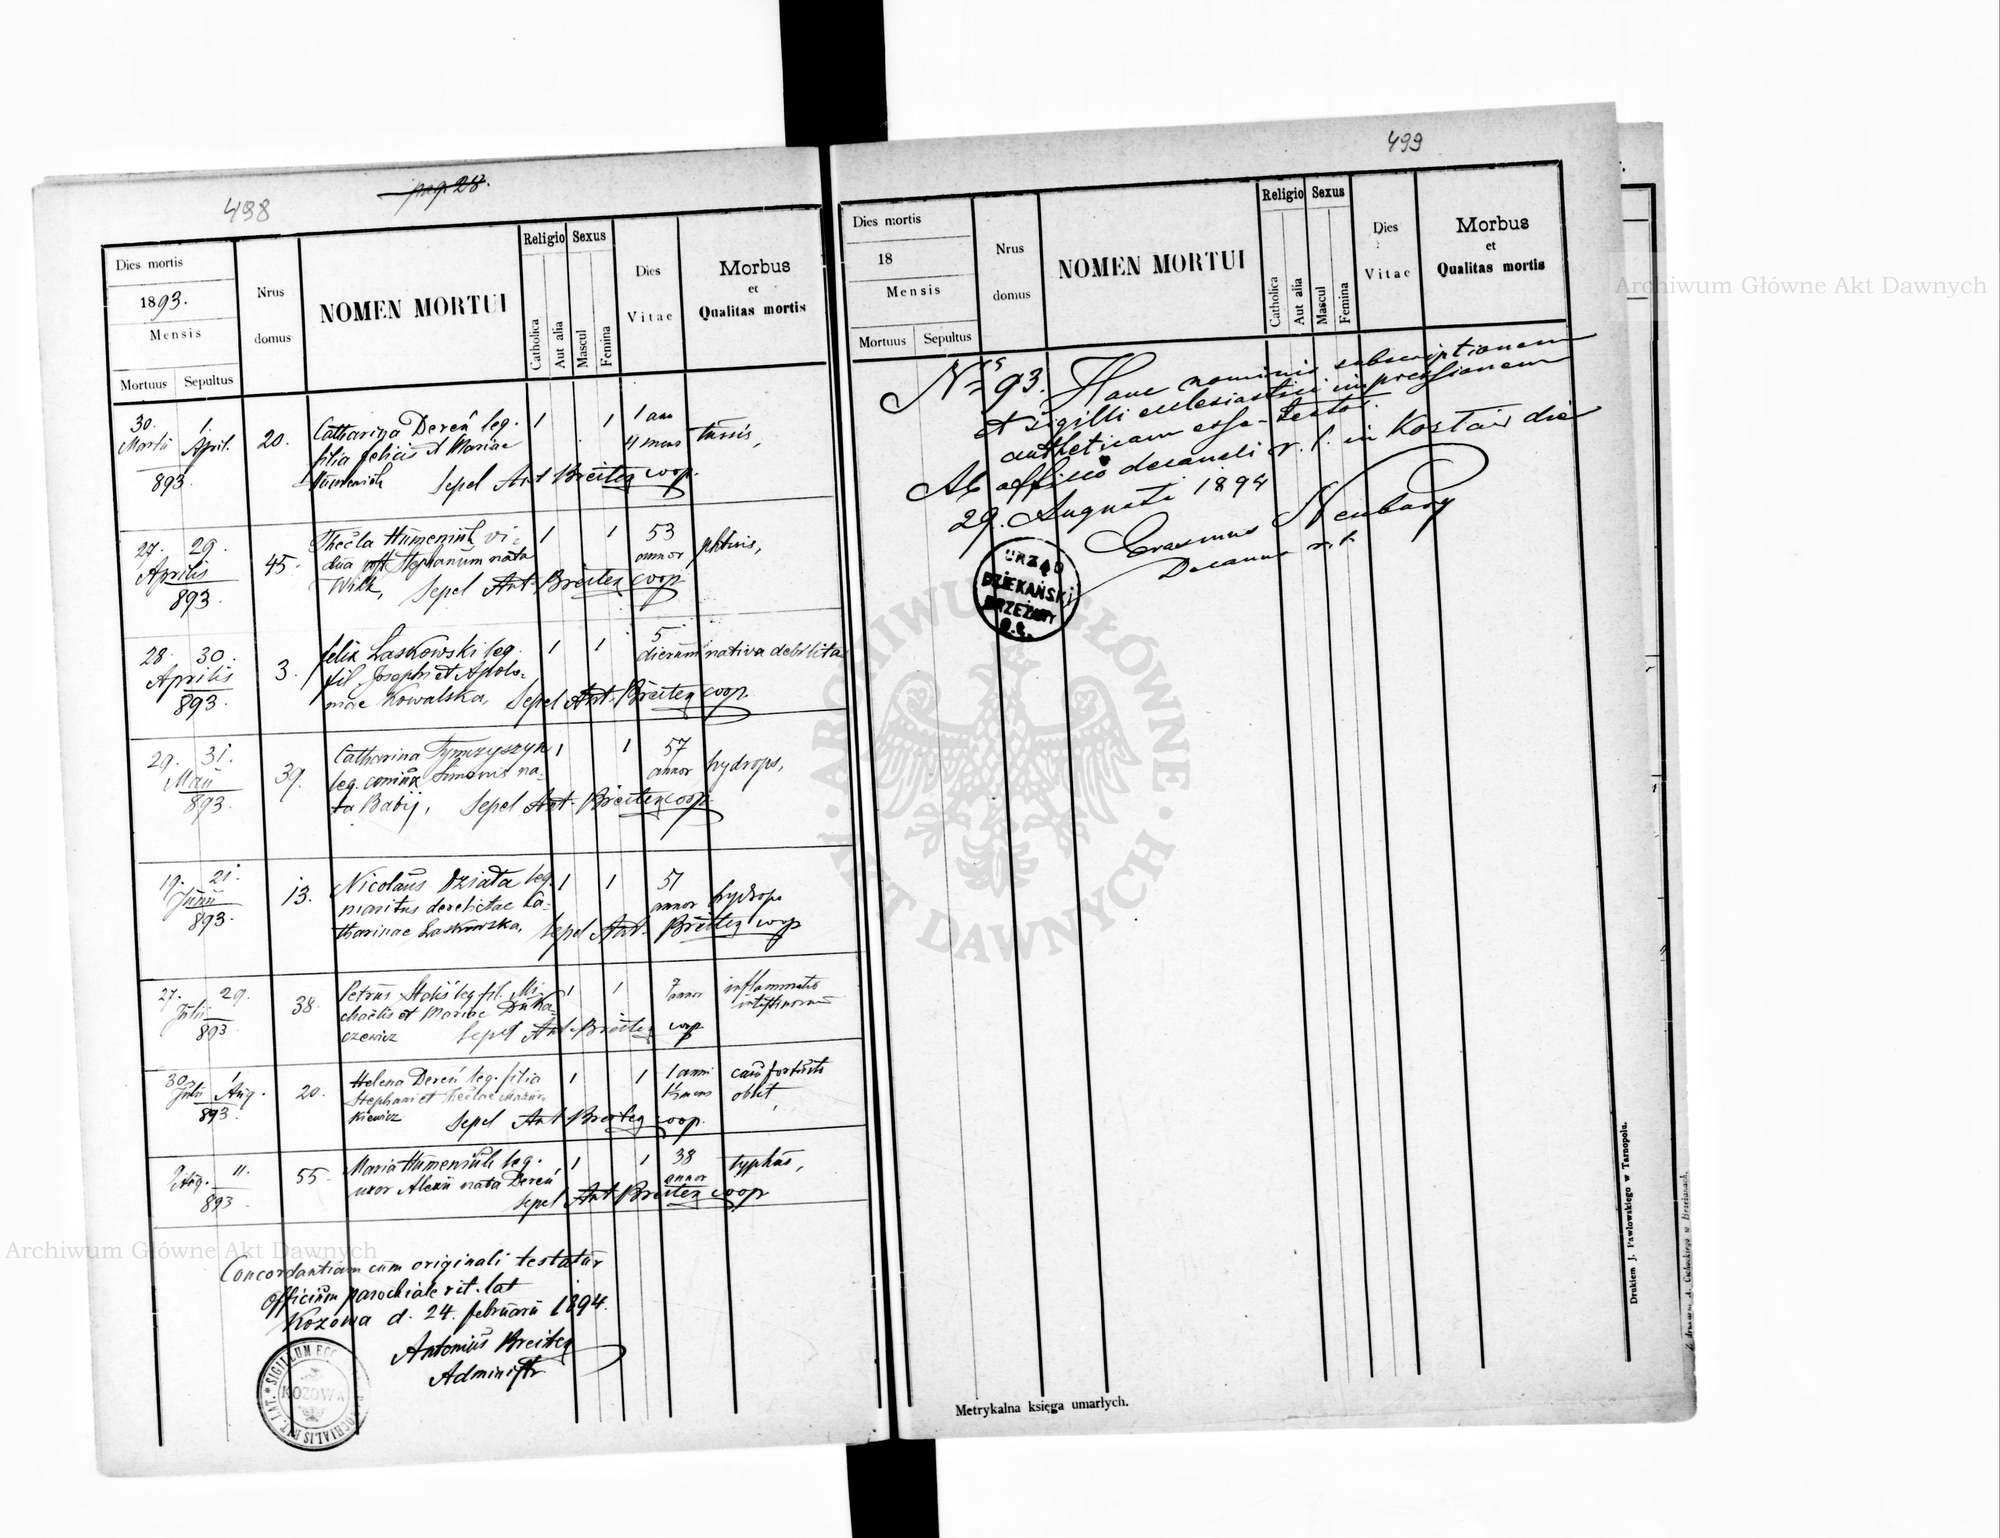 498
pag. 28.
Dies mortis
1893.
Mensis
Mortuus Sepultus
Nrus
domus
NOMEN MORTUI
Religio
Catholica
Aut alia
Sexus
Mascul
Femina
Dies
Vitae
Morbus
et
Qualitas mortis
30. 1. 20. Catharina Dereń leg. 1 1 1 ann
Martii April. filia felicis et Mariae 4 mens tussis,
893 Humeniuk Sepel Ant Breiteg coop.
27. 29. 45. Thecla Humeniuk vi- 1 1 53
Aprilis dua post Stephanum nata annor phtisis,
893. Wilk, Sepel Ant. Breiteg coop
28. 30. 3. felix Laskowski leg. 1 1 5
Aprilis fil. Josephi et Apolo- dierum nativa debilitas
893. niae Kowalska, Sepel Ant. Breiteg coop.
29. 31. 39. Catharina 1 1 57
Maii leg. Simonis na- annor hydrops,
893. ta Babij, Sepel Ant. Breiteg coop.
19. 21. 13. Nicolaus Działa leg. 1 1 51
Junii maritus derelictae Ca- annor hydrops
893. tharinae Laskowska, Sepel Ant. Breiteg coop
27. 29. 38. Petrus leg. fil. Mi- 1 1 7 inflammatio
Julii chaelis et Mariae Duka- annor intestinorum
893. czewicz Sepel Ant. Breiteg coop
30. 1 20. Helena Dereń leg. filia 1 1 1 anni casu fortuito
Julii Aug. Stephani et Theclae Mazur- mens obiit,
893. kiewicz Sepel Ant Breiteg coop.
Aug. 11. 55 Maria Humeniuk leg. 1 1 38 typhus,
893 uxor Alexii nata Dereń annor
Sepel Ant Breiteg coop
Concordantiam cum originali testatur
Officium parochiale rit. lat
Kozowa d. 24. februarii 1894.
Antonius Breiteg
Administr
499
Dies mortis
18
Mensis
Mortuus Sepultus
Nrus
domus
NOMEN MORTUI
Religio
Catholica
Aut alia
Sexus
Mascul
Femina
Dies
Vitae
Morbus
et
Qualitas mortis
Nrs 93. Hanc nominis subscriptionem
et sigilli ecclesiastici impressionem
autheticam esse testor.
Ab officio decanali r. l. in die
29. Augusti 1894
Erasmus Neuburg
Decanus r. l.
URZĄD
DZIEKAŃSKI
BRZEŻANY
Metrykalna księga umarłych.
Drukiem J. Pawłowskiego w Tarnopolu.
Archiwum Główne Akt Dawnych
Archiwum Główne Akt Dawnych
· ARCHIWUM GŁÓWNE · AKT DAWNYCH